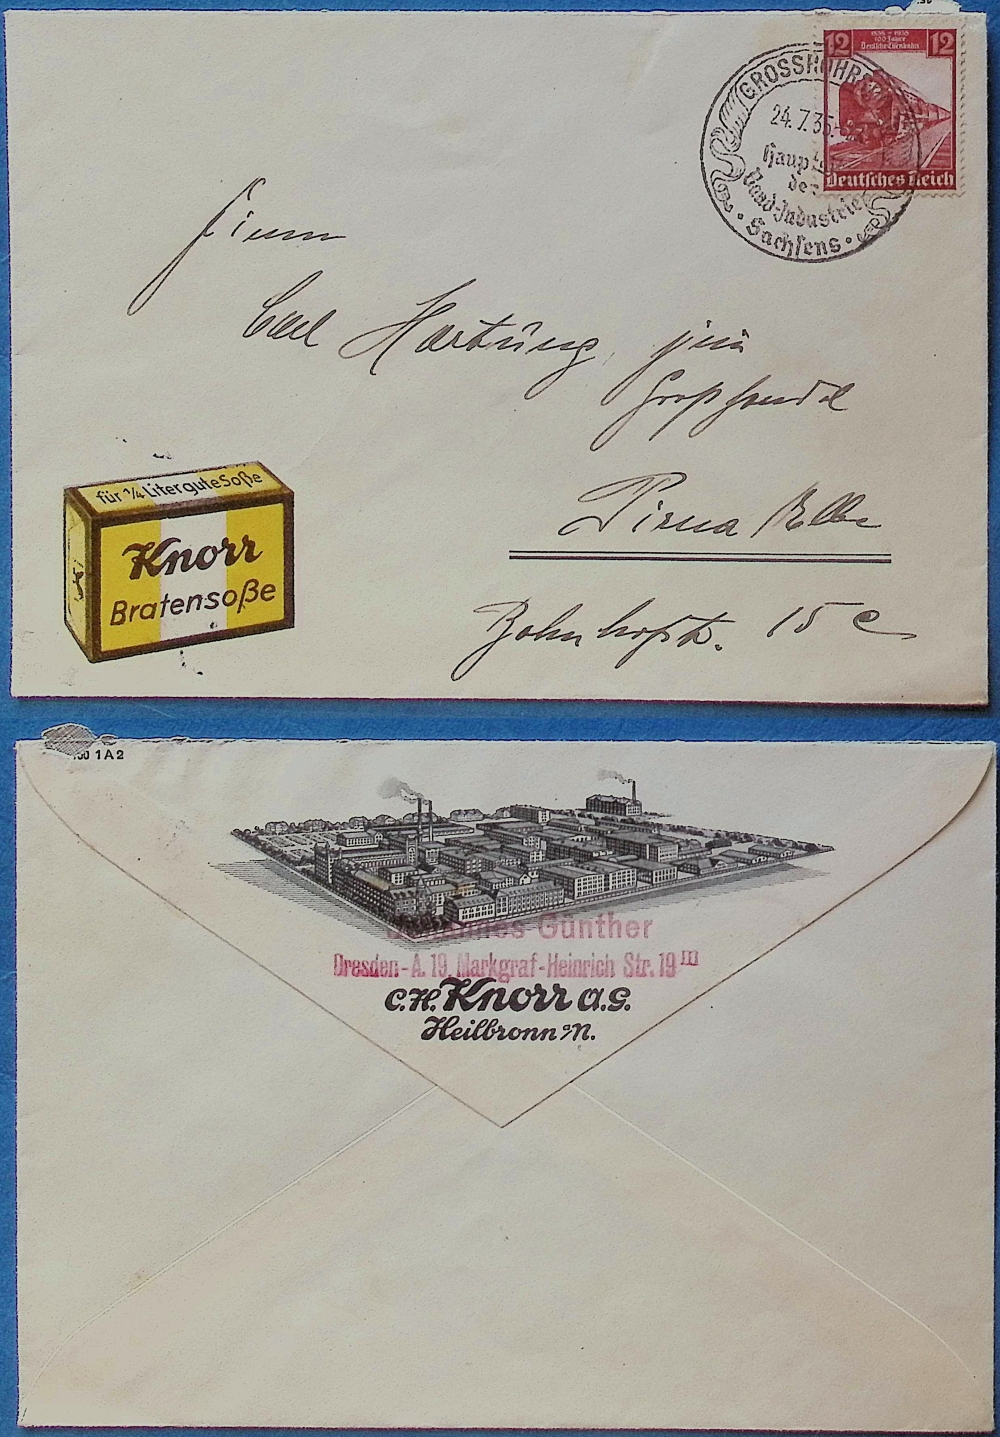 12 1835-1935 12
100 Jahre
Deutsche Eisenbahn
Deutsches Reich
GROSSRÖHRS
24.7.35.
Haupt
der
Band-Industrie
Sachsens
Firma
Carl Hartüng, jun
Großhandel
Pirna / Elbe
Bahnhofstr. 15 c
für 1/4 Liter gute Soße
Knorr
Bratensoße
1 A 2
Johannes Günther
Dresden-A. 19, Markgraf-Heinrich Str. 19 III
C.H. Knorr A.G.
Heilbronn a/N.